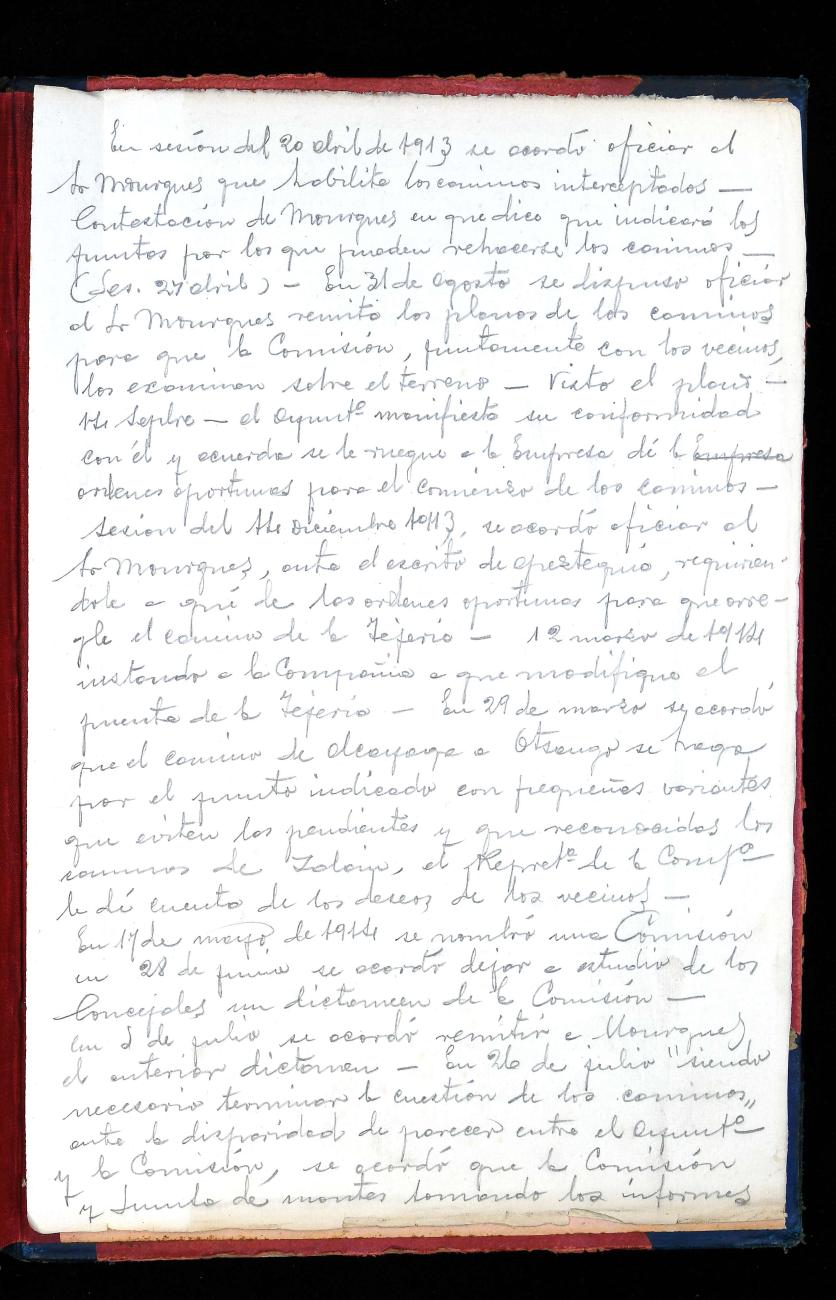 En sesión del 20 abril de 1913 se acordó oficiar al
Sr Mourgues que habilite los caminos interceptados —
Contestación de Mourgues en que dice que indicará los
puntos por los que pueden rehacerse los caminos —
(Ses. 27 abril) — En 31 de agosto se dispuso oficiar
al Sr Mourgues remita los planos de los caminos
para que la Comisión, juntamente con los vecinos,
los examinen sobre el terreno — Visto el plano —
14 Sepbre — el Ayuntº manifiesta su conformidad
con él y acuerda se le ruegue a la Empresa dé la Empresa
ordenes oportunas para el comienzo de los caminos —
Sesion del 14 diciembre 1913, se acordó oficiar al
Sr Mourgues, ante el escrito de Apezteguia, requirien-
dole a que de las ordenes oportunas para que arre-
gle el camino de la Tejería — 12 marzo de 1914
instando a la Compañia a que modifique el
puente de la Tejeria — En 29 de marzo se acordó
que el camino de Alcayaga a Otsango se haga
por el punto indicado con pequeñas variantes
que eviten las pendientes y que reconocidos los
caminos de Zalain, el Repretº de la Compª
le dé cuenta de los deseos de los vecinos —
En 17 de mayo, de 1914 se nombró una Comisión
en 28 de junio se acordó dejar a estudio de los
Concejales un dictamen de la Comisión —
En 5 de julio se acordó remitir a Mourgues
el anterior dictamen — En 26 de julio "siendo
necesario terminar la cuestión de los caminos,,
ante la disparidad de parecer entre el Ayuntº
y la Comisión, se acordó que la Comisión
y Junta de montes tomando los informes